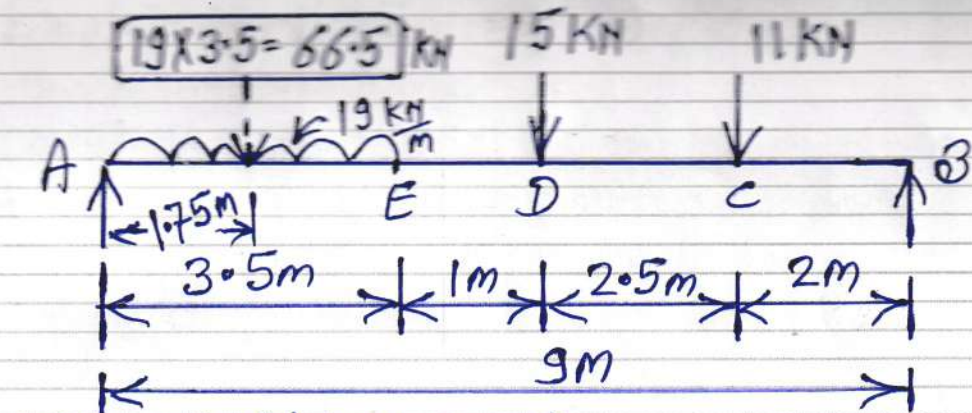 19X3.5= 66.5 KN 15 KN 11 KN
19 KN/m
A B
1.75m E D C
3.5m 1m 2.5m 2m
9M